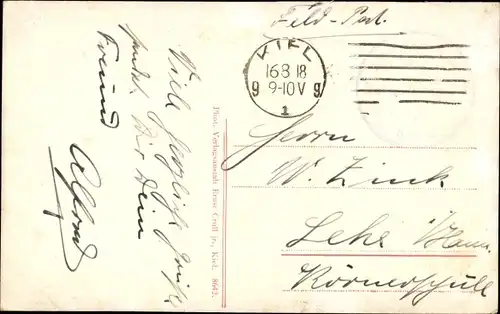 Feld-Post.
KIEL
16 8 18
9-10 V
g g
1
Viele herzliche Grüße
sendet Dir Dein
Freund
Alfred
Phot. Verlagsanstalt Reuse Croll jr., Kiel. 8642.
Herrn
W. Zink
Lehe i/Hann.
Körnerschule